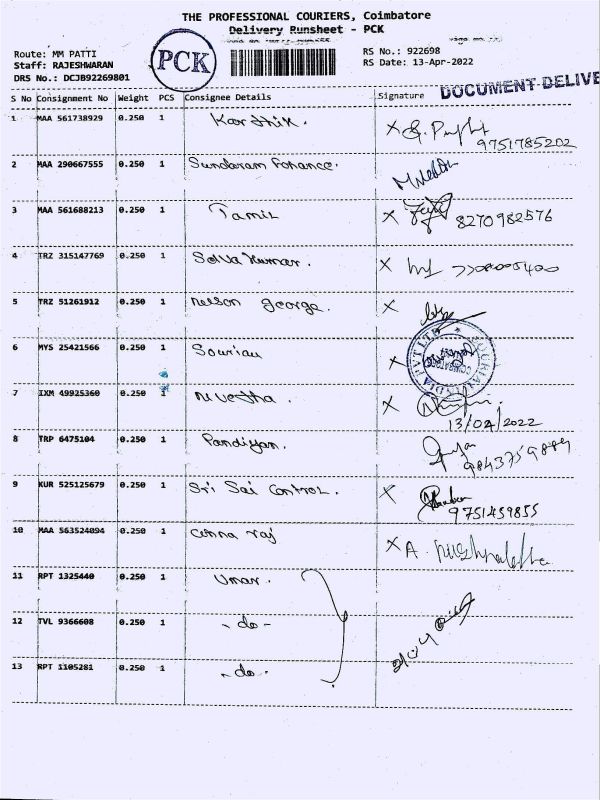 THE PROFESSIONAL COURIERS, Coimbatore
Delivery Runsheet - PCK
Route: MM PATTI
Staff: RAJESHWARAN
DRS No.: DCJB92269801
PCK
RS No.: 922698
RS Date: 13-Apr-2022
DOCUMENT DELIVE
S No Consignment No Weight PCS Consignee Details Signature
1 MAA 561738929 0.250 1 Karthik. X
9751785202
2 MAA 290667555 0.250 1 Sundaram Fonance.
3 MAA 561688213 0.250 1 Tamil X 8270982576
4 TRZ 315147769 0.250 1 Selva Kumar. X
5 TRZ 51261912 0.250 1 Nelson george. X
6 MYS 25421566 0.250 1 Souriau X
7 IXM 49925360 0.250 1 Nivetha. X
13/04/2022
8 TRP 6475104 0.250 1 Pandiyan.
9843759889
9 KUR 525125679 0.250 1 Sri Sai Control. X
9751459855
10 MAA 563524094 0.250 1 Cinna raj X A. Pushpalatha
11 RPT 1325440 0.250 1 Umar.
12 TVL 9366608 0.250 1 - do -
13 RPT 1105281 0.250 1 - do -